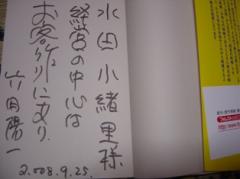 水田小緒里様
経営の中心は
お客作りにあり
竹田陽一
2008.9.25.